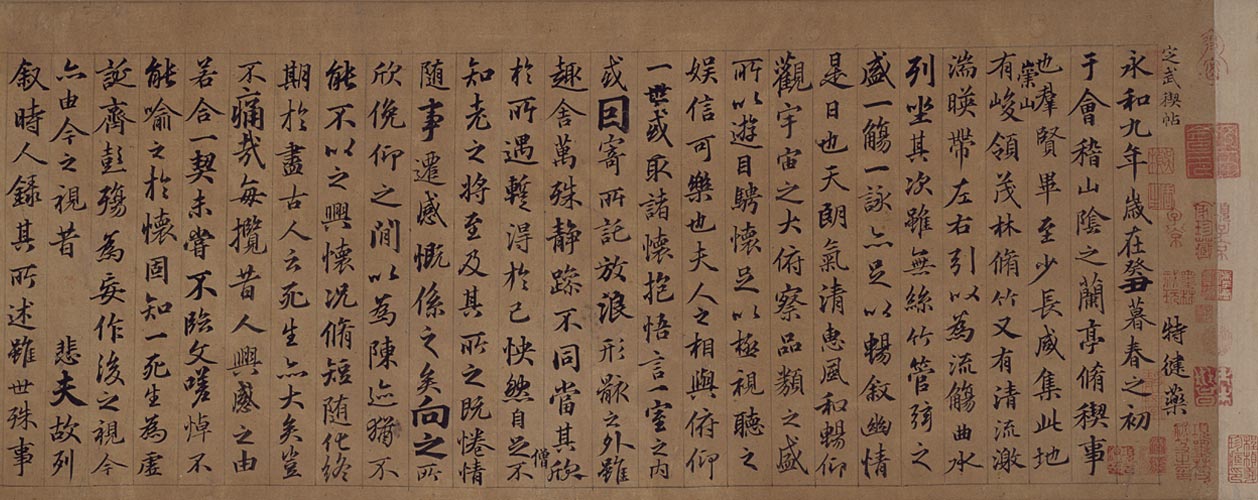 定武禊帖
特健藥
永和九年歲在癸丑暮春之初
于會稽山陰之蘭亭脩禊事
也羣賢畢至少長咸集此地
崇山
有峻領茂林脩竹又有清流激
湍暎帶左右引以為流觴曲水
列坐其次雖無絲竹管弦之
盛一觴一詠亦足以暢叙幽情
是日也天朗氣清惠風和暢仰
觀宇宙之大俯察品類之盛
所以遊目騁懷足以極視聽之
娛信可樂也夫人之相與俯仰
一世或取諸懷抱悟言一室之內
或因寄所託放浪形骸之外雖
趣舍萬殊靜躁不同當其欣
僧
於所遇蹔得於己怏然自足不
知老之將至及其所之既惓情
隨事遷感慨係之矣向之所
欣俛仰之閒以為陳迹猶不
能不以之興懷況脩短隨化終
期於盡古人云死生亦大矣豈
不痛哉每攬昔人興感之由
若合一契未嘗不臨文嗟悼不
能喻之於懷固知一死生為虛
誕齊彭殤為妄作後之視今
亦由今之視昔 悲夫故列
叙時人錄其所述雖世殊事